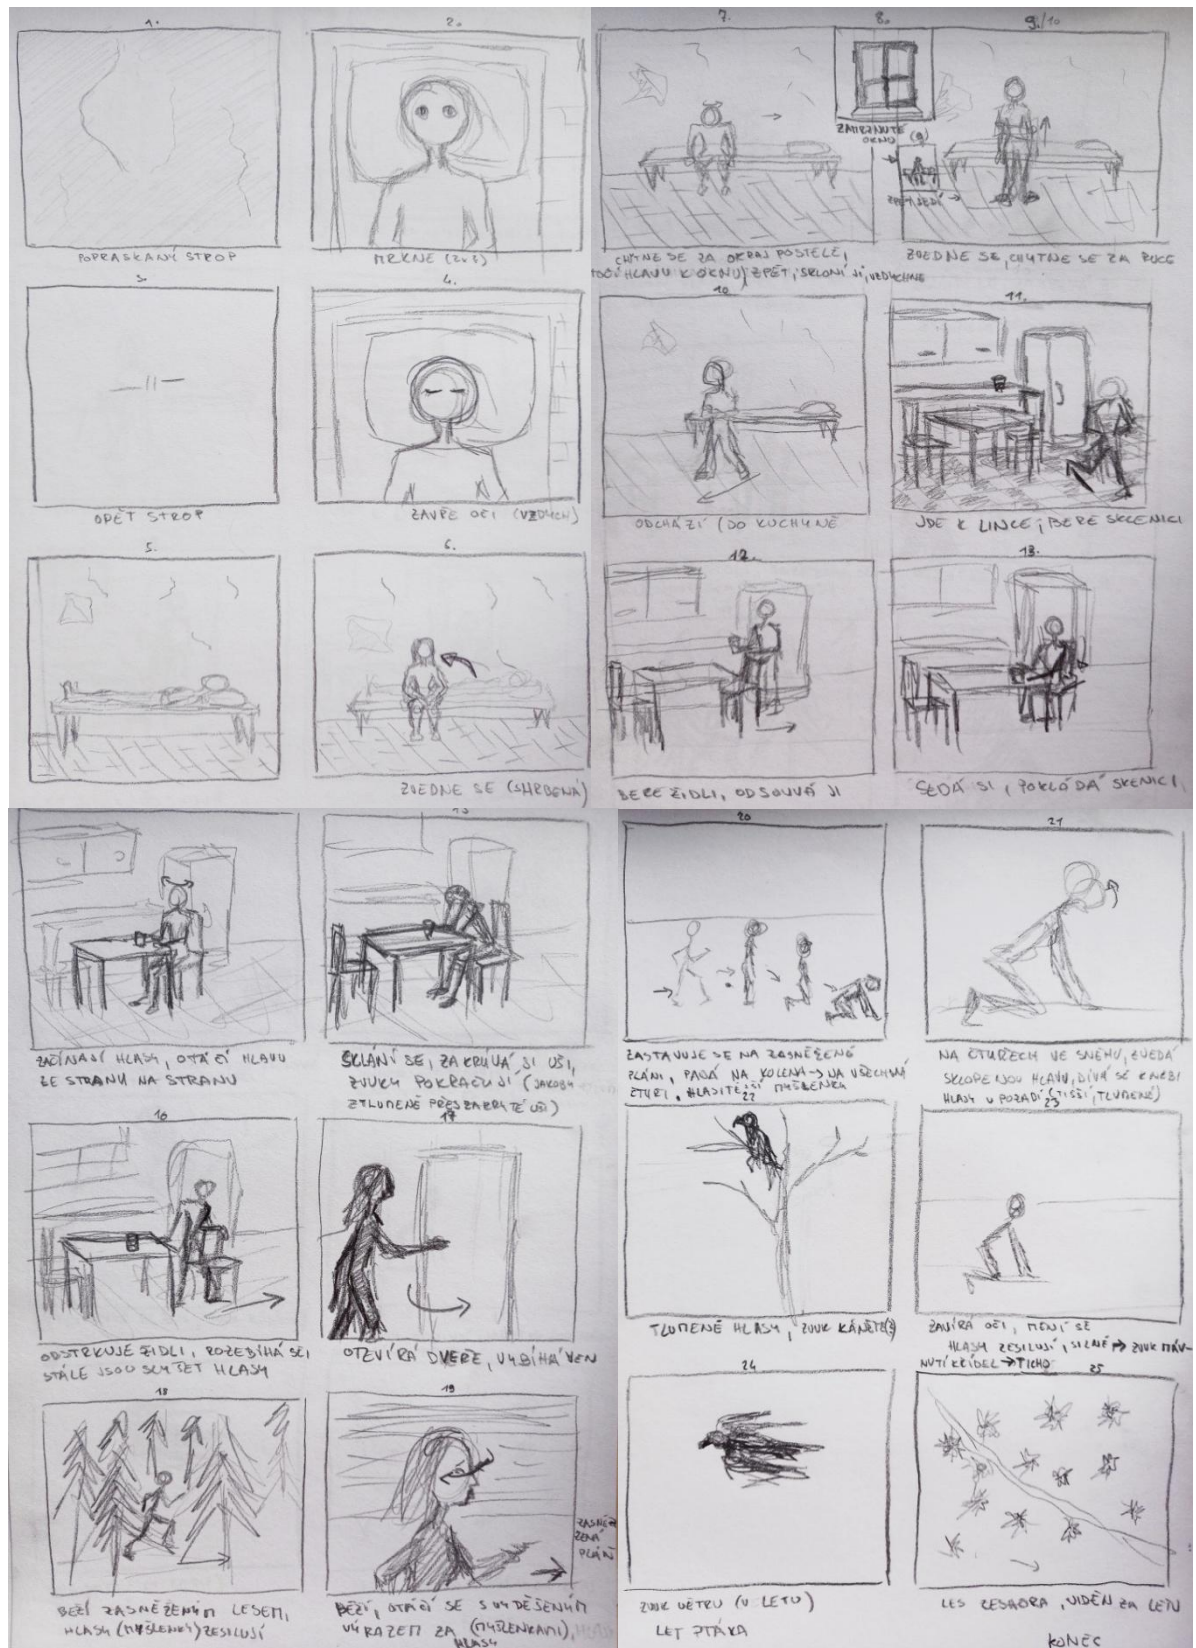 1.
POPRASKANÝ STROP
2.
MRKNE (2x)
3.
OPĚT STROP
4.
ZAVŘE OČI (VZDYCH)
5.
6.
ZVEDNE SE (SHRBENÁ)
7.
CHYTNE SE ZA OKRAJ POSTELE,
TOČÍ HLAVU K OKNU, ZPĚT, SKLONÍ JI, VZDYCHNE
8.
ZAMRZNUTÉ
OKNO
(9)
ZPĚT
9./10
ZVEDNE SE, CHYTNE SE ZA RUCE
10.
ODCHÁZÍ (DO KUCHYNĚ
11.
JDE K LINCE, BERE SKLENICI
12.
BERE ŽIDLI, ODSOUVÁ JI
13.
SEDÁ SI, POKLÁDÁ SKENICI,
ZAČÍNAJÍ HLASY, OTÁČÍ HLAVU
ZE STRANY NA STRANU
15
SKLÁNÍ SE, ZAKRÝVÁ SI UŠI,
ZVUKY POKRAČUJÍ (JAKOBY
ZTLUMENÉ PŘES ZAKRYTÉ UŠI)
16
ODSTRKUJE ŽIDLI, ROZEBÍHÁ SE,
STÁLE JSOU SLYŠET HLASY
17
OTEVÍRÁ DVEŘE, VYBÍHÁ VEN
18
BĚŽÍ ZASNĚŽENÝM LESEM,
HLASY (MYŠLENKY) ZESILUJÍ
19
ZASNĚ-
ŽENÁ
PLÁŇ
BĚŽÍ, OTÁČÍ SE S VYDĚŠENÝM
VÝRAZEM ZA (MYŠLENKAMI),
HLASY
20
ZASTAVUJE SE NA ZASNĚŽENÉ
PLÁNI, PADÁ NA KOLENA → NA VŠECHNY
ČTYŘI, HLASITĚJŠÍ MYŠLENKY
21
NA ČTYŘECH VE SNĚHU, ZVEDÁ
SKLOPENOU HLAVU, DÍVÁ SE K NEBI
HLASY V POZADÍ (TIŠŠÍ, TLUMENÉ)
22
TLUMENÉ HLASY, ZVUK KÁNĚTE(?)
23
ZAVÍRÁ OČI, MĚNÍ SE
HLASY ZESILUJÍ, SILNĚ → ZVUK MÁV-
NUTÍ KŘÍDEL → TICHO
24
ZVUK VĚTRU (V LETU)
LET PTÁKA
25
LES ZESHORA, VIDĚN ZA LETU
KONEC